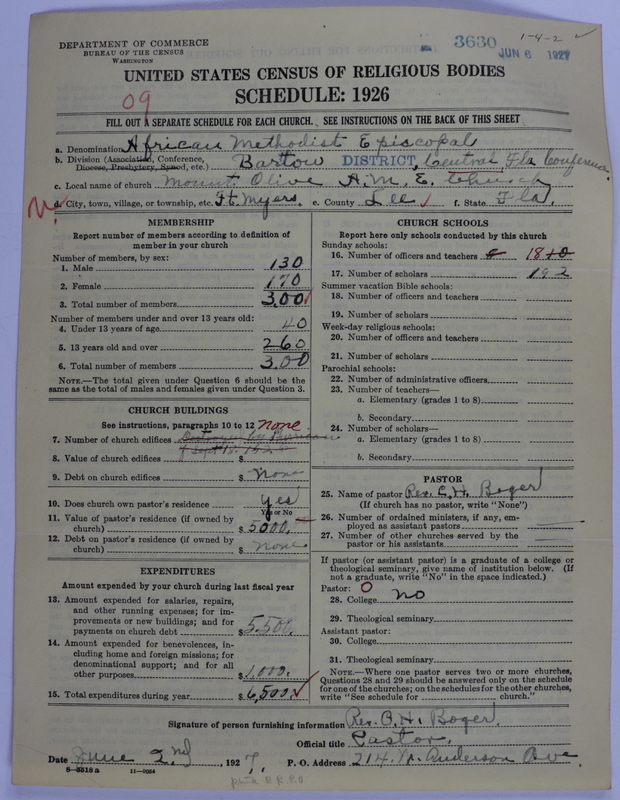 1-4-2 ✓
DEPARTMENT OF COMMERCE
BUREAU OF THE CENSUS
WASHINGTON
3630
JUN 6 1927
UNITED STATES CENSUS OF RELIGIOUS BODIES
SCHEDULE: 1926
09
FILL OUT A SEPARATE SCHEDULE FOR EACH CHURCH. SEE INSTRUCTIONS ON THE BACK OF THIS SHEET
a. Denomination African Methodist Episcopal
b. Division (Association, Conference, Diocese, Presbytery, Synod, etc.) Bartow DISTRICT, Central, Fla Conference
c. Local name of church Mount Olive A.M.E. Church
d. City, town, village, or township, etc. Ft. Myers. e. County Lee f. State Fla.
MEMBERSHIP
Report number of members according to definition of
member in your church
Number of members, by sex:
1. Male 130
2. Female 170
3. Total number of members 300
Number of members under and over 13 years old:
4. Under 13 years of age 40
5. 13 years old and over 260
6. Total number of members 300
NOTE.—The total given under Question 6 should be the
same as the total of males and females given under Question 3.
CHURCH BUILDINGS
See instructions, paragraphs 10 to 12 none
7. Number of church edifices Destroyed by Hurricane
8. Value of church edifices $ of Sept 18.
9. Debt on church edifices $ None
10. Does church own pastor's residence Yes
Yes or No
11. Value of pastor's residence (if owned by
church) $ 5000.
12. Debt on pastor's residence (if owned by
church) $ None
EXPENDITURES
Amount expended by your church during last fiscal year
13. Amount expended for salaries, repairs,
and other running expenses; for im-
provements or new buildings; and for
payments on church debt $ 5,500.
14. Amount expended for benevolences, in-
cluding home and foreign missions; for
denominational support; and for all
other purposes $ 1,000.
15. Total expenditures during year $ 6,500.
CHURCH SCHOOLS
Report here only schools conducted by this church
Sunday schools:
16. Number of officers and teachers 18
17. Number of scholars 192
Summer vacation Bible schools:
18. Number of officers and teachers
19. Number of scholars
Week-day religious schools:
20. Number of officers and teachers
21. Number of scholars
Parochial schools:
22. Number of administrative officers
23. Number of teachers—
a. Elementary (grades 1 to 8)
b. Secondary
24. Number of scholars—
a. Elementary (grades 1 to 8)
b. Secondary
PASTOR
25. Name of pastor Rev. C. H. Boger
(If church has no pastor, write "None")
26. Number of ordained ministers, if any, em-
ployed as assistant pastors
27. Number of other churches served by the
pastor or his assistants
If pastor (or assistant pastor) is a graduate of a college or
theological seminary, give name of institution below. (If
not a graduate, write "No" in the space indicated.)
Pastor: 0
28. College no
29. Theological seminary
Assistant pastor:
30. College
31. Theological seminary
NOTE.—Where one pastor serves two or more churches,
Questions 28 and 29 should be answered only on the schedule
for one of the churches; on the schedules for the other churches,
write "See schedule for church."
Signature of person furnishing information Rev. C. H. Boger.
Official title Pastor.
Date June 2nd, 1927. P. O. Address 214 W. Anderson Ave
8-5518 a 11-9084